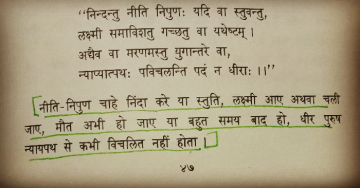 “निन्दन्तु नीति निपुणः यदि वा स्तुवन्तु,
लक्ष्मी समाविशतु गच्छतु वा यथेष्टम् ।
अद्यैव वा मरणमस्तु युगान्तरे वा,
न्याय्यात्पथः पविचलन्ति पदं न धीराः ।।”
नीति-निपुण चाहे निंदा करे या स्तुति, लक्ष्मी आए अथवा चली
जाए, मौत अभी हो जाए या बहुत समय बाद हो, धीर पुरुष
न्यायपथ से कभी विचलित नहीं होता ।
४७